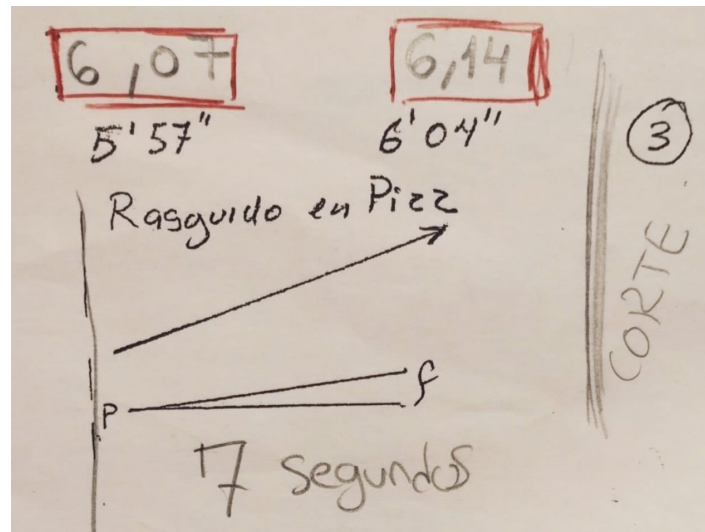 6,07 6,14
5'57" 6'04" 3
Rasguido en Pizz
CORTE
P f
7 segundos